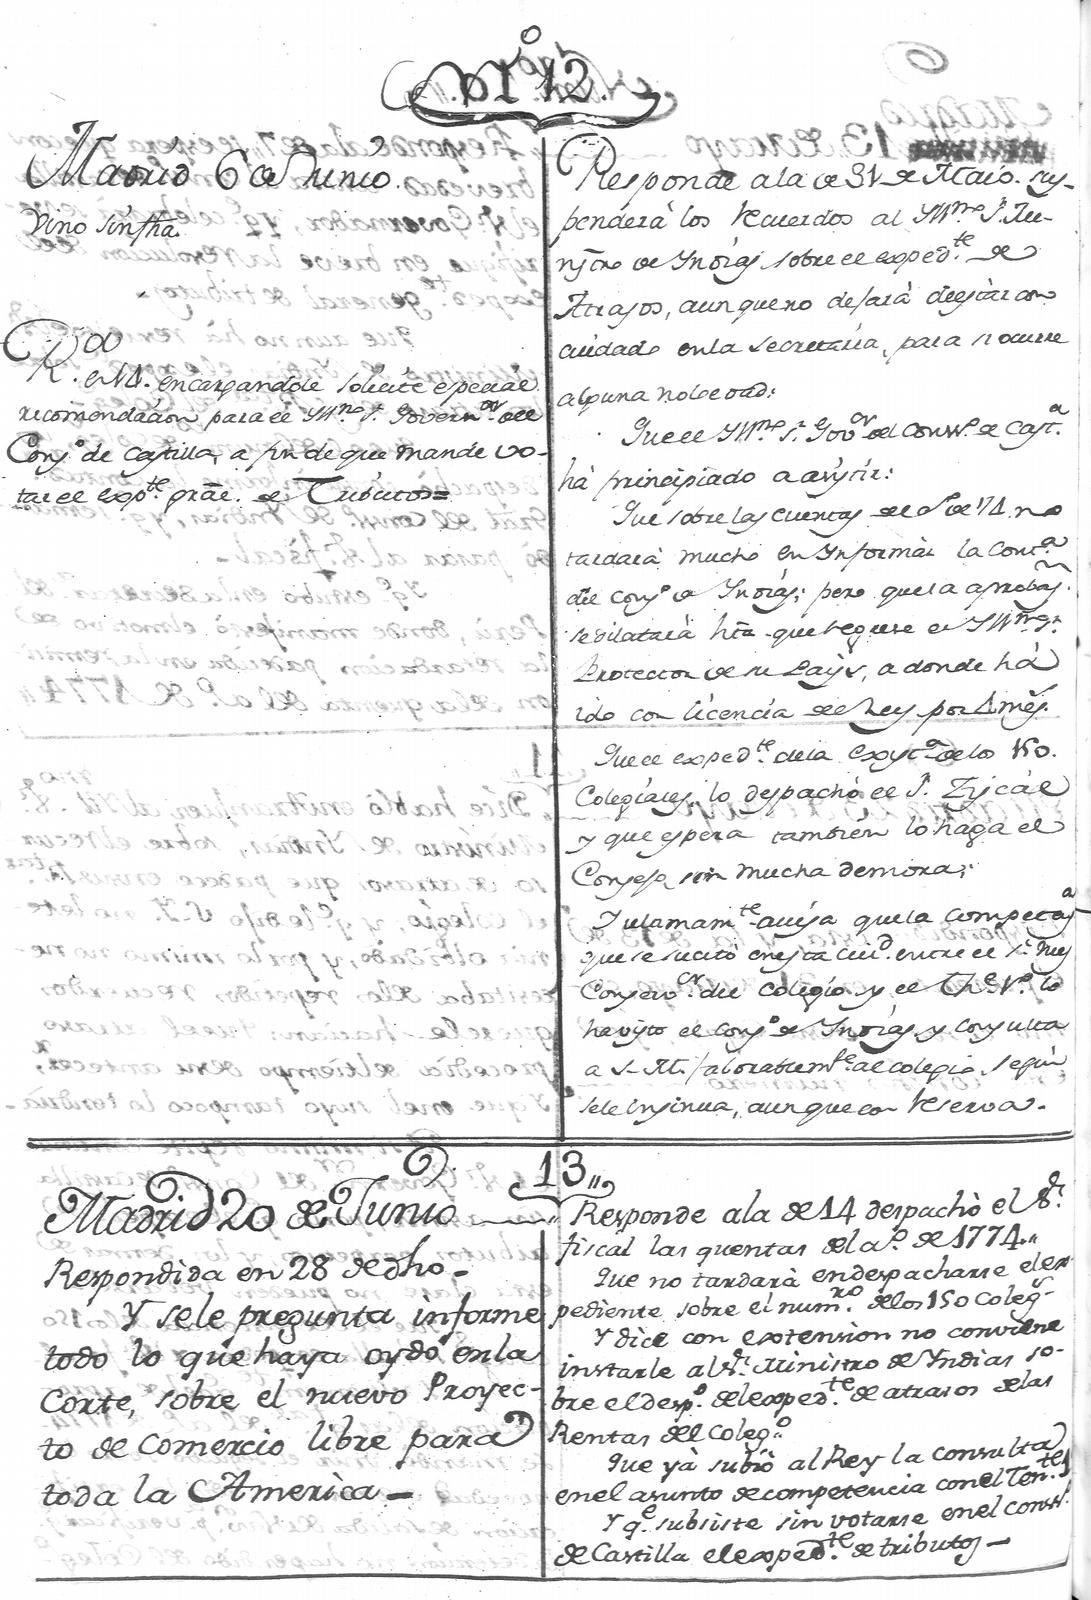 N.º 12.
Madrid 6 de Junio.
Vino sin fha.
R.do
R. en 14. encargandole solicite especial
recomendacion para el Yllmo Sr. Govern.or del
Cons.o de Castilla, a fin de que mande vo-
tar el exp.te gral. de Tributos=
Responde a la de 31 de Maio. sus-
penderá los recuerdos al Yllmo Sr. Mi-
nistro de Indias sobre el exped.te de
Atrasos, aunque no dejará de estar con
cuidado en la Secretaria, para si ocurre
alguna novedad:
Que el Yllmo Sr. Gov.or del Cons.o de Cast.a
há principiado a asistir:
Que sobre las cuentas de el de 74 no
tardará mucho en Informar la Cont.a
del Cons.o de Indias; pero que la aprobas.n
se dilatará hta. que regrese el Yllmo Sr.
Protector de su Pays, a donde há
ido con licencia del Rey por 4 mes.s
Que el exped.te de la exyst.a de los 150.
Colegiales, lo despachó el Sr. Fiscal
y que espera tambien lo haga el
Consejo, sin mucha demora;
Y ulamam.te avisa que la compet.a
que se sucitó en esta Ciu.d entre el Sr. Juez
Conserv.or del Colegio y el The. Vº. lo
ha visto el Cons.o de Indias y consulta
a S. M. favorablem.te al colegio, según
se le insinua, aunque con reserva.
13,,
Madrid 20 de Junio
Respondida en 28 de dho.
Y se le pregunta informe
todo lo que haya oydo en la
Corte, sobre el nuevo Proyec-
to de Comercio libre para
toda la America=
Responde a la de 14 despachó el Sr.
fiscal las quentas del a.o de 1774,,
Que no tardará en despacharse el ex-
pediente sobre el num.ro de los 150 Coleg.s
Y dice con extension no conviene
instarle al Sr. Ministro de Yndias so-
bre el desp.o del exped.te de atrasos de las
Rentas del Coleg.o
Que yà subió al Rey la consulta
en el asunto de competencia con el Ten.te
Y q.e subsiste sin votarse en el Cons.o
de Castilla el exped.te de tributos—